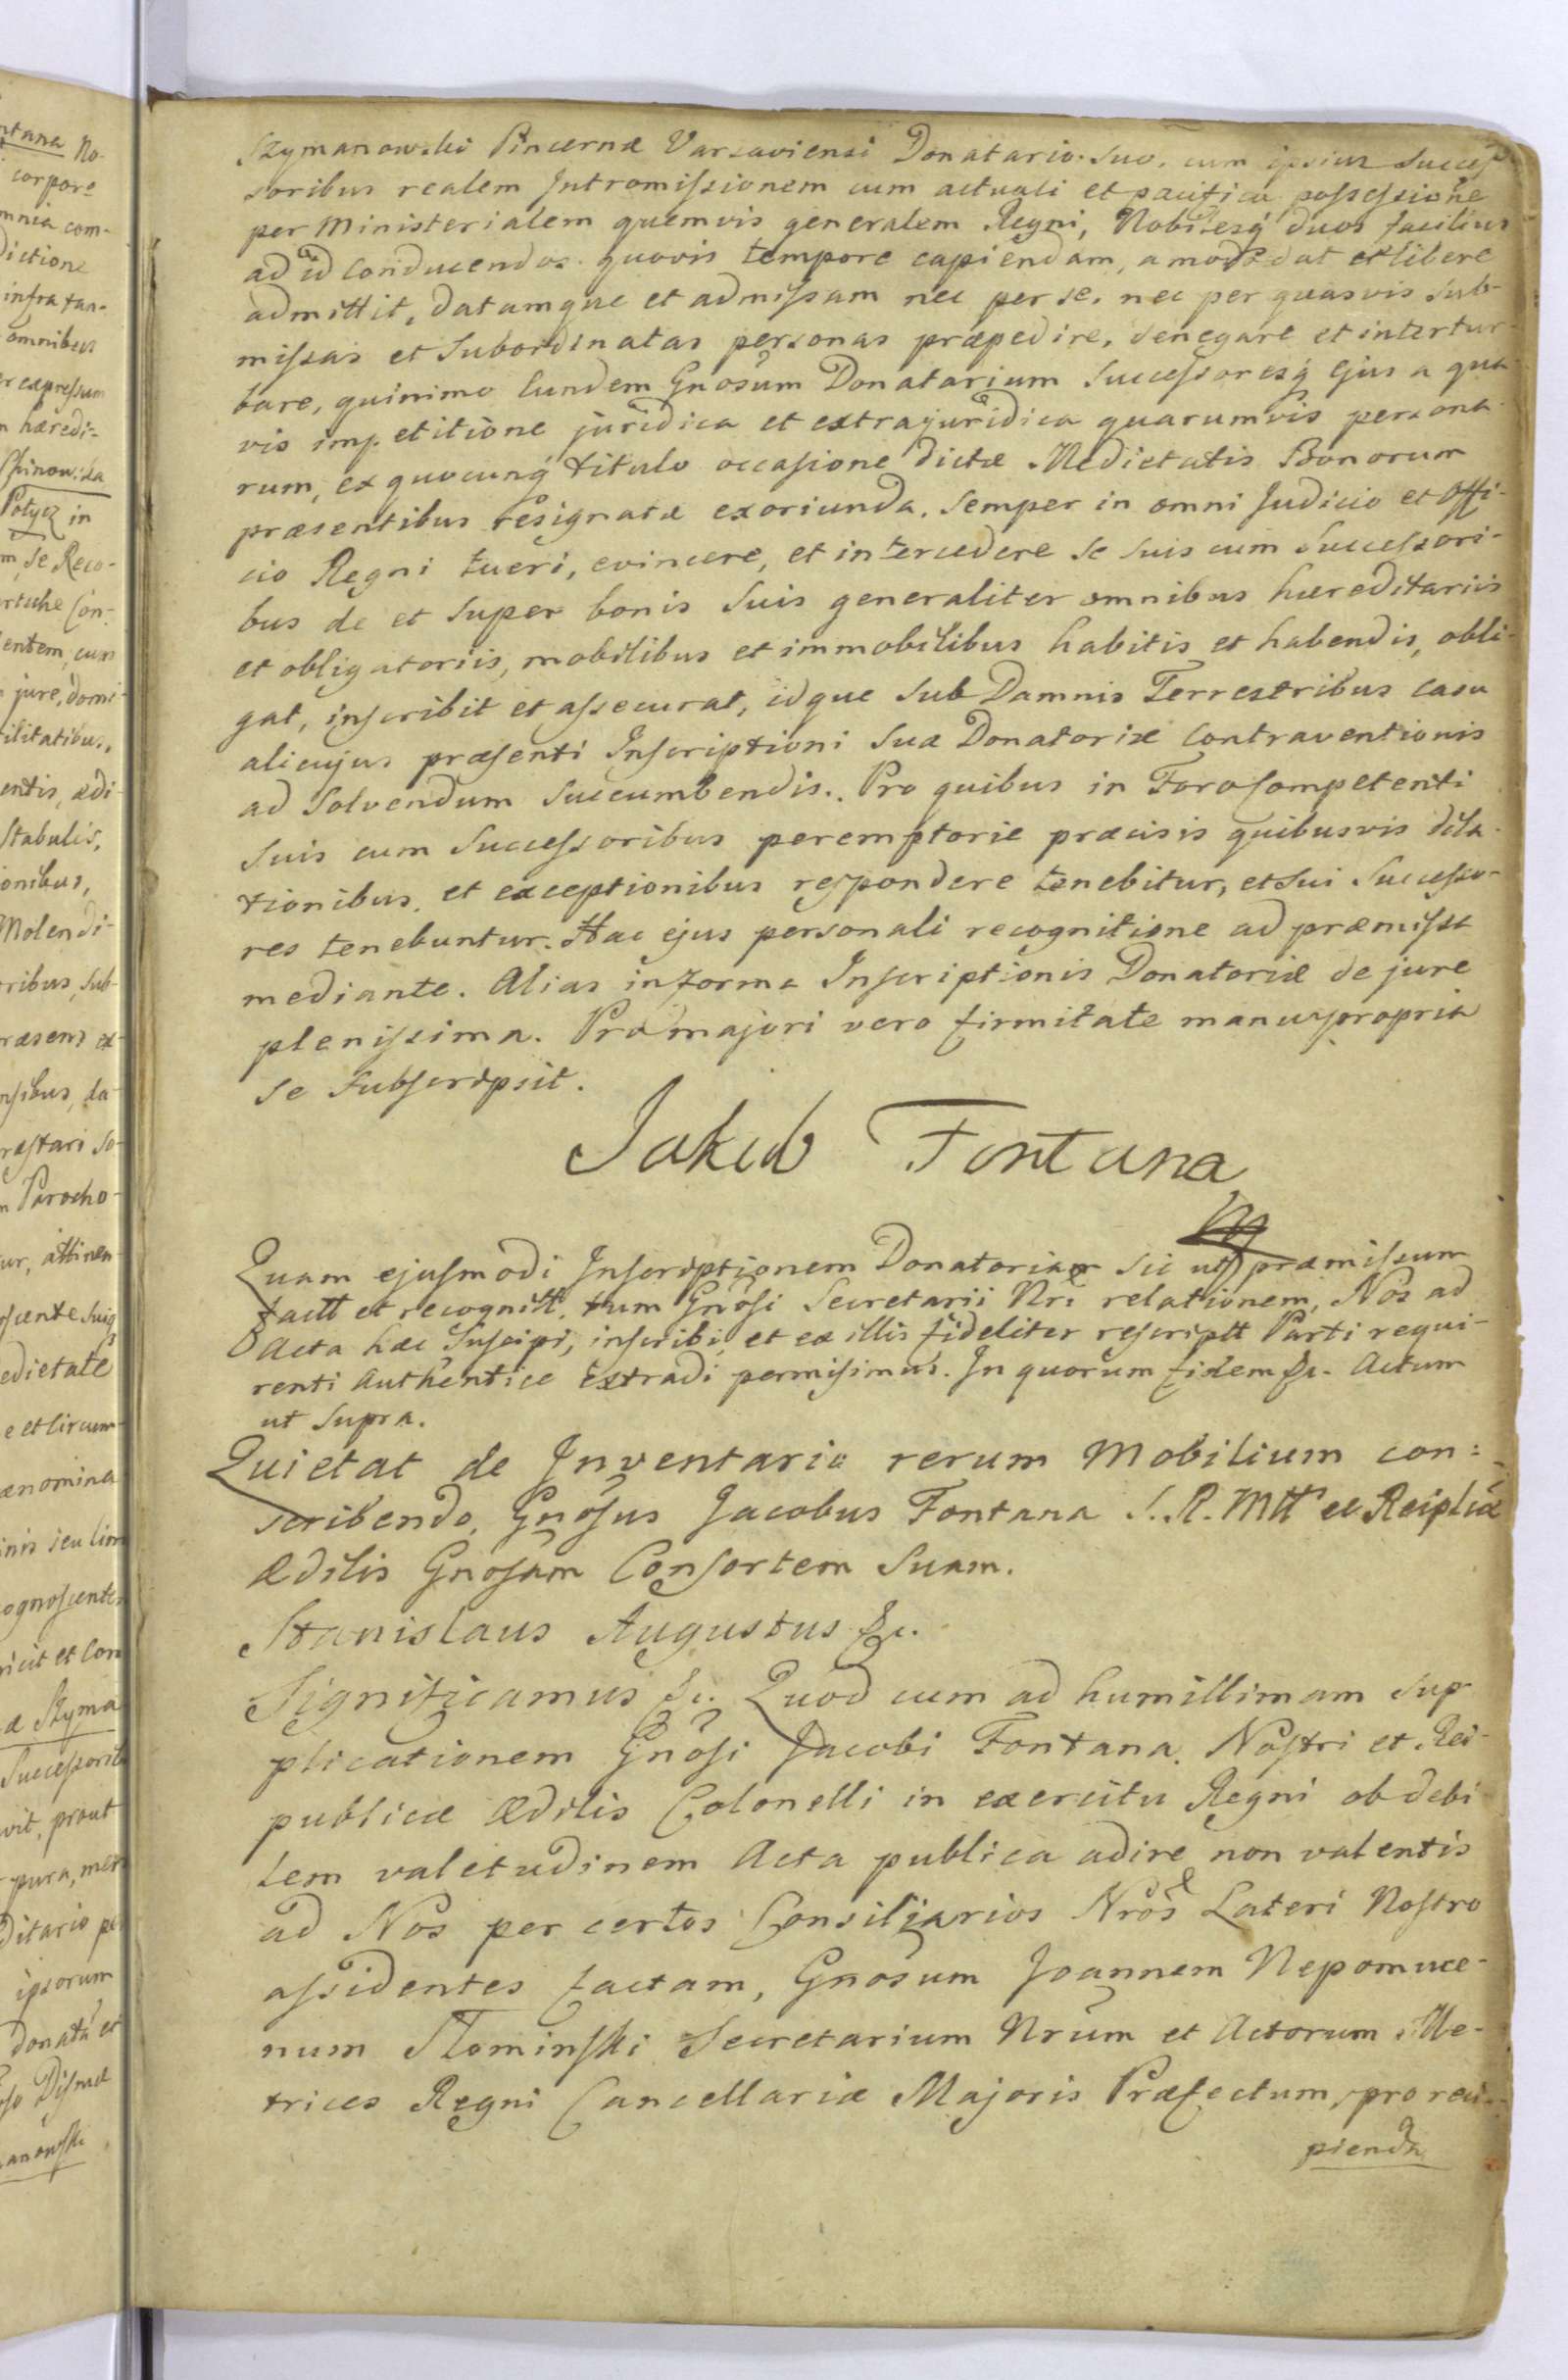 Szymanowski Pincernæ Varsaviensi Donatario suo, cum ipsius Succes-
soribus realem Intromissionem cum actuali et pacifica possessione
per Ministerialem quemvis generalem Regni, Nobilesq́ duos facilius
ad id conducendos quovis tempore capiendam, a modo dat et libere
admittit, datamque et admissam nec per se, nec per quasvis sub-
missas et Subordinatas personas præpedire, denegare et intertur-
bare, quinimo Eundem Gnōsum Donatarium Successoresq́ Ejus a qua-
vis impetitione juridica et extrajuridica quarumvis persona-
rum, ex quocunq́ titulo occasione dictæ Medietatis Bonorum
præsentibus resignatæ exoriunda, Semper in omni Judicio et Offi-
cio Regni tueri, evincere, et intercedere se suis cum Successori-
bus de et Super bonis Suis generaliter omnibus hæreditariis
et obligatoriis, mobilibus et immobilibus habitis et habendis, obli-
gat, inscribit et assecurat, idque Sub Damnis Terrestribus casu
alicujus præsenti Inscriptioni Suæ Donatoriæ Contraventionis
ad Solvendum Succumbendis. Pro quibus in Foro Competenti
Suis cum Successoribus peremptorie præcisis quibusvis dila-
tionibus, et exceptionibus respondere tenebitur, et sui Successo-
res tenebuntur. Hac ejus personali recognitione ad præmissa
mediante. Alias in forma Inscriptionis Donatoriæ de jure
plenissima. Pro majori vero firmitate manu propria
se subscripsit.
Jakub Fontana
Quam ejusmodi Inscriptionem Donatoriam sic ut præmissum
factt et recognitt, tum Gnōsi Secretarii Nrī relationem, Nos ad
Acta hæc Suscipi, inscribi, et ex illis fideliter rescriptt Parti requi-
renti Authentice Extradi permisimus. In quorum fidem &c. Actum
ut Supra.
Quietat de Inventario rerum Mobilium con:
scribendo, Gnōsus Jacobus Fontana S. R. Mtt et Reiplicæ
Ædilis Gnosam Consortem Suam.
Stanislaus Augustus &c.
Significamus &c. Quod cum ad humillimam Sup-
plicationem Gnōsi Jacobi Fontana, Nostri et Rei-
publicæ Ædilis Colonelli in exercitu Regni ob debi-
lem valetudinem Acta publica adire non valentis
ad Nos per certos Consiliarios Nrōs Lateri Nostro
assidentes factam, Gnōsum Joannem Nepomuce-
num Słominski Secretarium Nrūm et Actorum Me-
trices Regni Cancellariæ Majoris Præfectum, pro reci-
pienda
ntana No-
corpore
mnia com-
dictione
infra tan-
omnibus
r expressum
n hæredi-
Potycz in
m, se Reco-
entem, cum
jure, domi-
ilitatibus,
entis, ædi-
Stabulis,
onibus,
Molendi-
ribus, sub-
ræsens ex-
nsibus, da-
ræstari so-
n Parocho-
ur, attinen-
edietate
e et circum-
ænomina
inis seu lim
ognoscente
icit et Con
a Szyma
Successorib
vit, prout
pura, mer
ditario pe
ipsorum
donata et
anowski